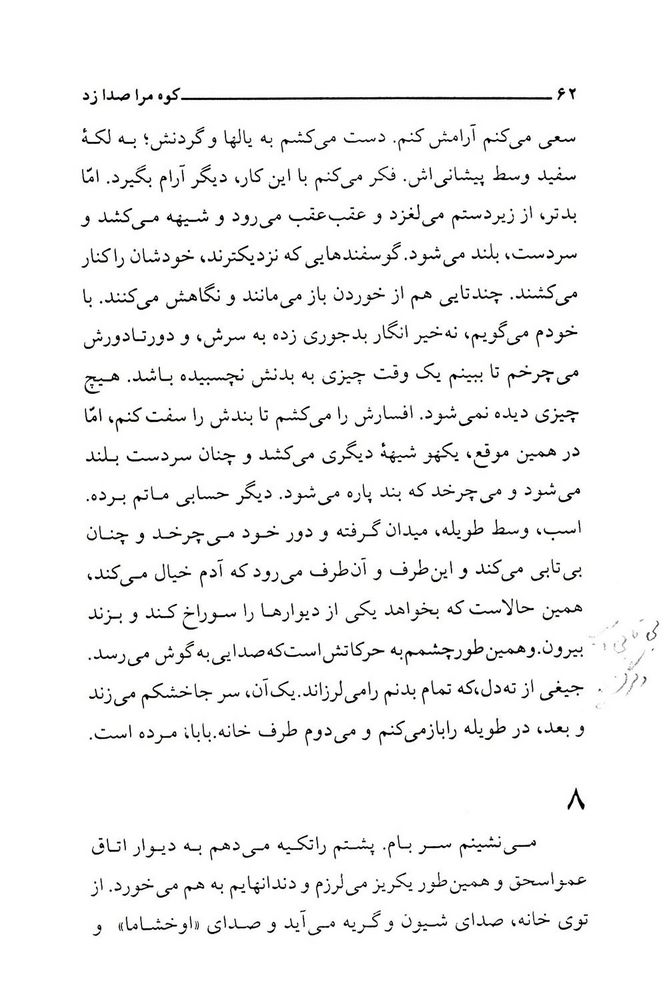 ۶۲ کوه مرا صدا زد
سعی می‌کنم آرامش کنم. دست می‌کشم به یالها و گردنش؛ به لکهٔ
سفید وسط پیشانی‌اش. فکر می‌کنم با این کار، دیگر آرام بگیرد. امّا
بدتر، از زیردستم می‌لغزد و عقب‌عقب می‌رود و شیهه می‌کشد و
سردست، بلند می‌شود. گوسفندهایی که نزدیکترند، خودشان را کنار
می‌کشند. چندتایی هم از خوردن باز می‌مانند و نگاهش می‌کنند. با
خودم می‌گویم، نه‌خیر انگار بدجوری زده به سرش، و دورتادورش
می‌چرخم تا ببینم یک وقت چیزی به بدنش نچسبیده باشد. هیچ
چیزی دیده نمی‌شود. افسارش را می‌کشم تا بندش را سفت کنم، امّا
در همین موقع، یکهو شیههٔ دیگری می‌کشد و چنان سردست بلند
می‌شود و می‌چرخد که بند پاره می‌شود. دیگر حسابی ماتم برده.
اسب، وسط طویله، میدان گرفته و دور خود می‌چرخد و چنان
بی‌تابی می‌کند و این‌طرف و آن‌طرف می‌رود که آدم خیال می‌کند،
همین حالاست که بخواهد یکی از دیوارها را سوراخ کند و بزند
بیرون. و همین طور چشمم به حرکاتش است که صدایی به گوش می‌رسد.
جیغی از ته‌دل، که تمام بدنم را می‌لرزاند. یک آن، سر جا خشکم می‌زند
و بعد، در طویله را باز می‌کنم و می‌دوم طرف خانه. بابا، مرده است.
۸
می‌نشینم سر بام. پشتم را تکیه می‌دهم به دیوار اتاق
عمو اسحق و همین طور یکریز می‌لرزم و دندانهایم به هم می‌خورد. از
توی خانه، صدای شیون و گریه می‌آید و صدای «اوخشاما» و